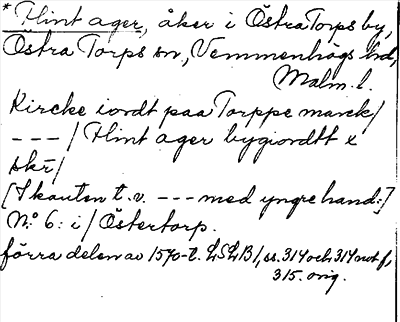 * Hint ager, åker i Östra Torps by,
Östra Torps sn, Vemmenhögs hd,
Malm. l.
Kircke iordt paa Torppe marck/
--- / Hint ager bygiordtt x
skr/
[I kanten t.v. --- med yngre hand:]
N:o 6: i / Östertorp.
förra delen av 1570-t. LSLB1, ss. 314 och 314 not f,
315. orig.